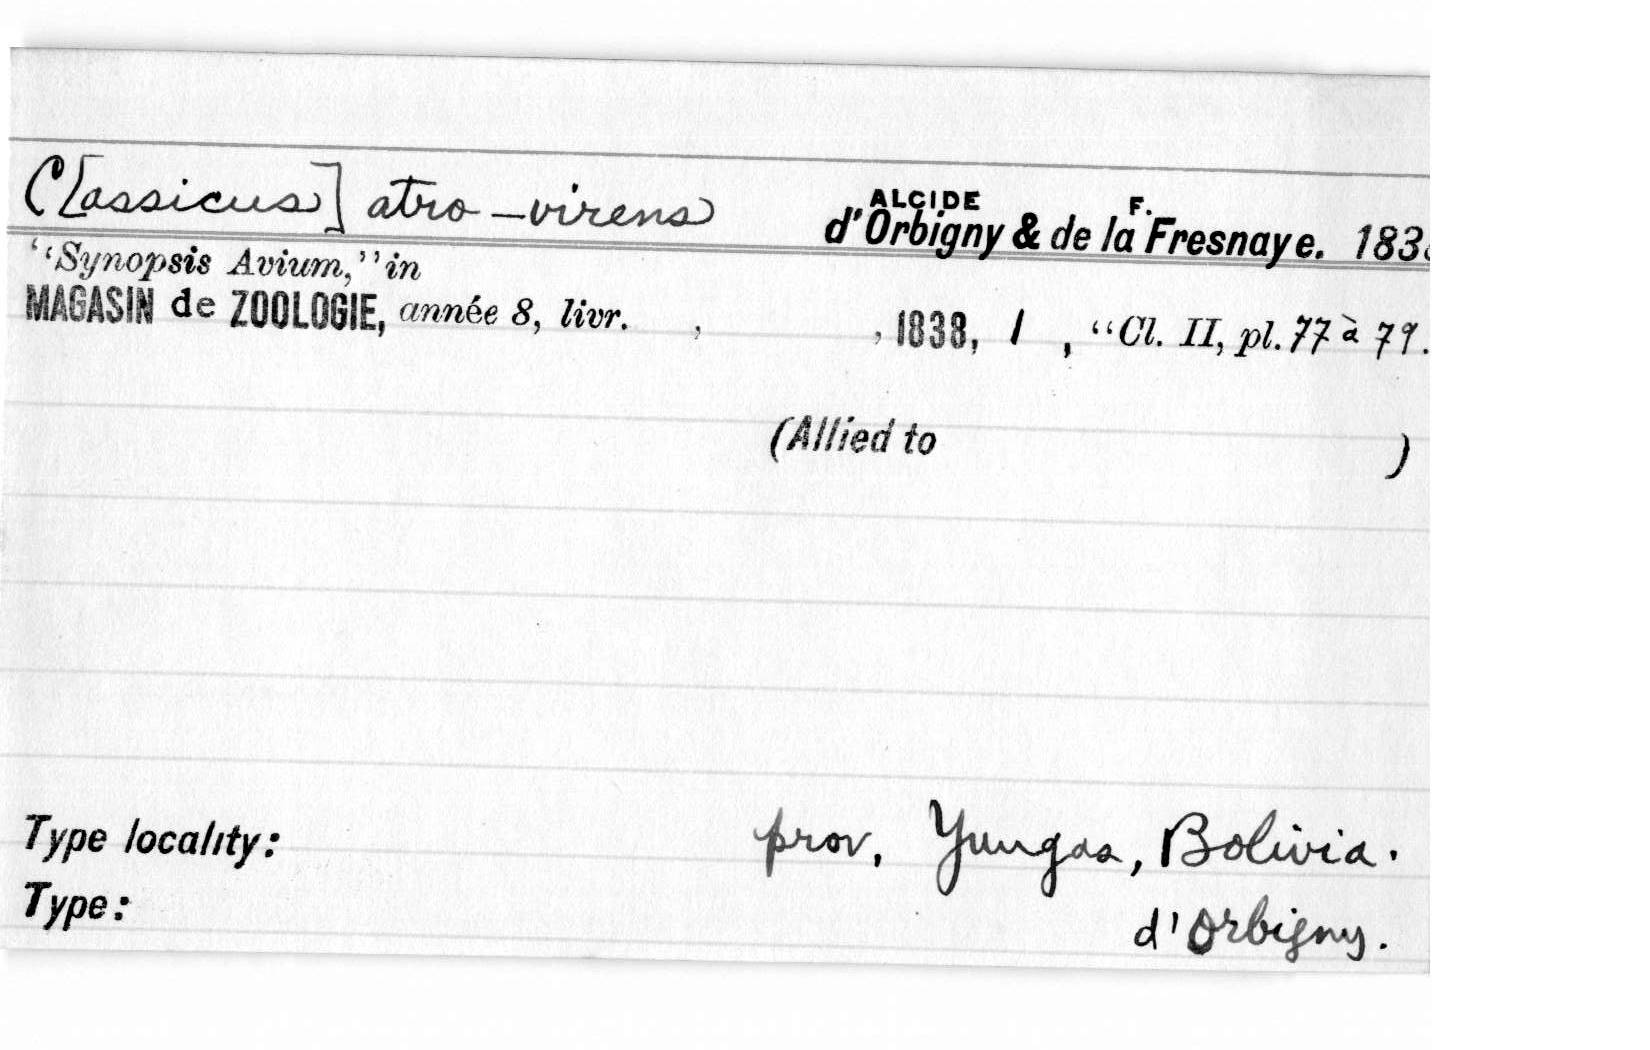 C[assicus] atro-virens ALCIDE d'Orbigny & F. de la Fresnaye. 183
"Synopsis Avium," in
MAGASIN de ZOOLOGIE, année 8, livr. , , 1838, 1 , "Cl. II, pl. 77 à 79.
(Allied to )
Type locality: prov, Yungas, Bolivia.
Type: d'Orbigny.